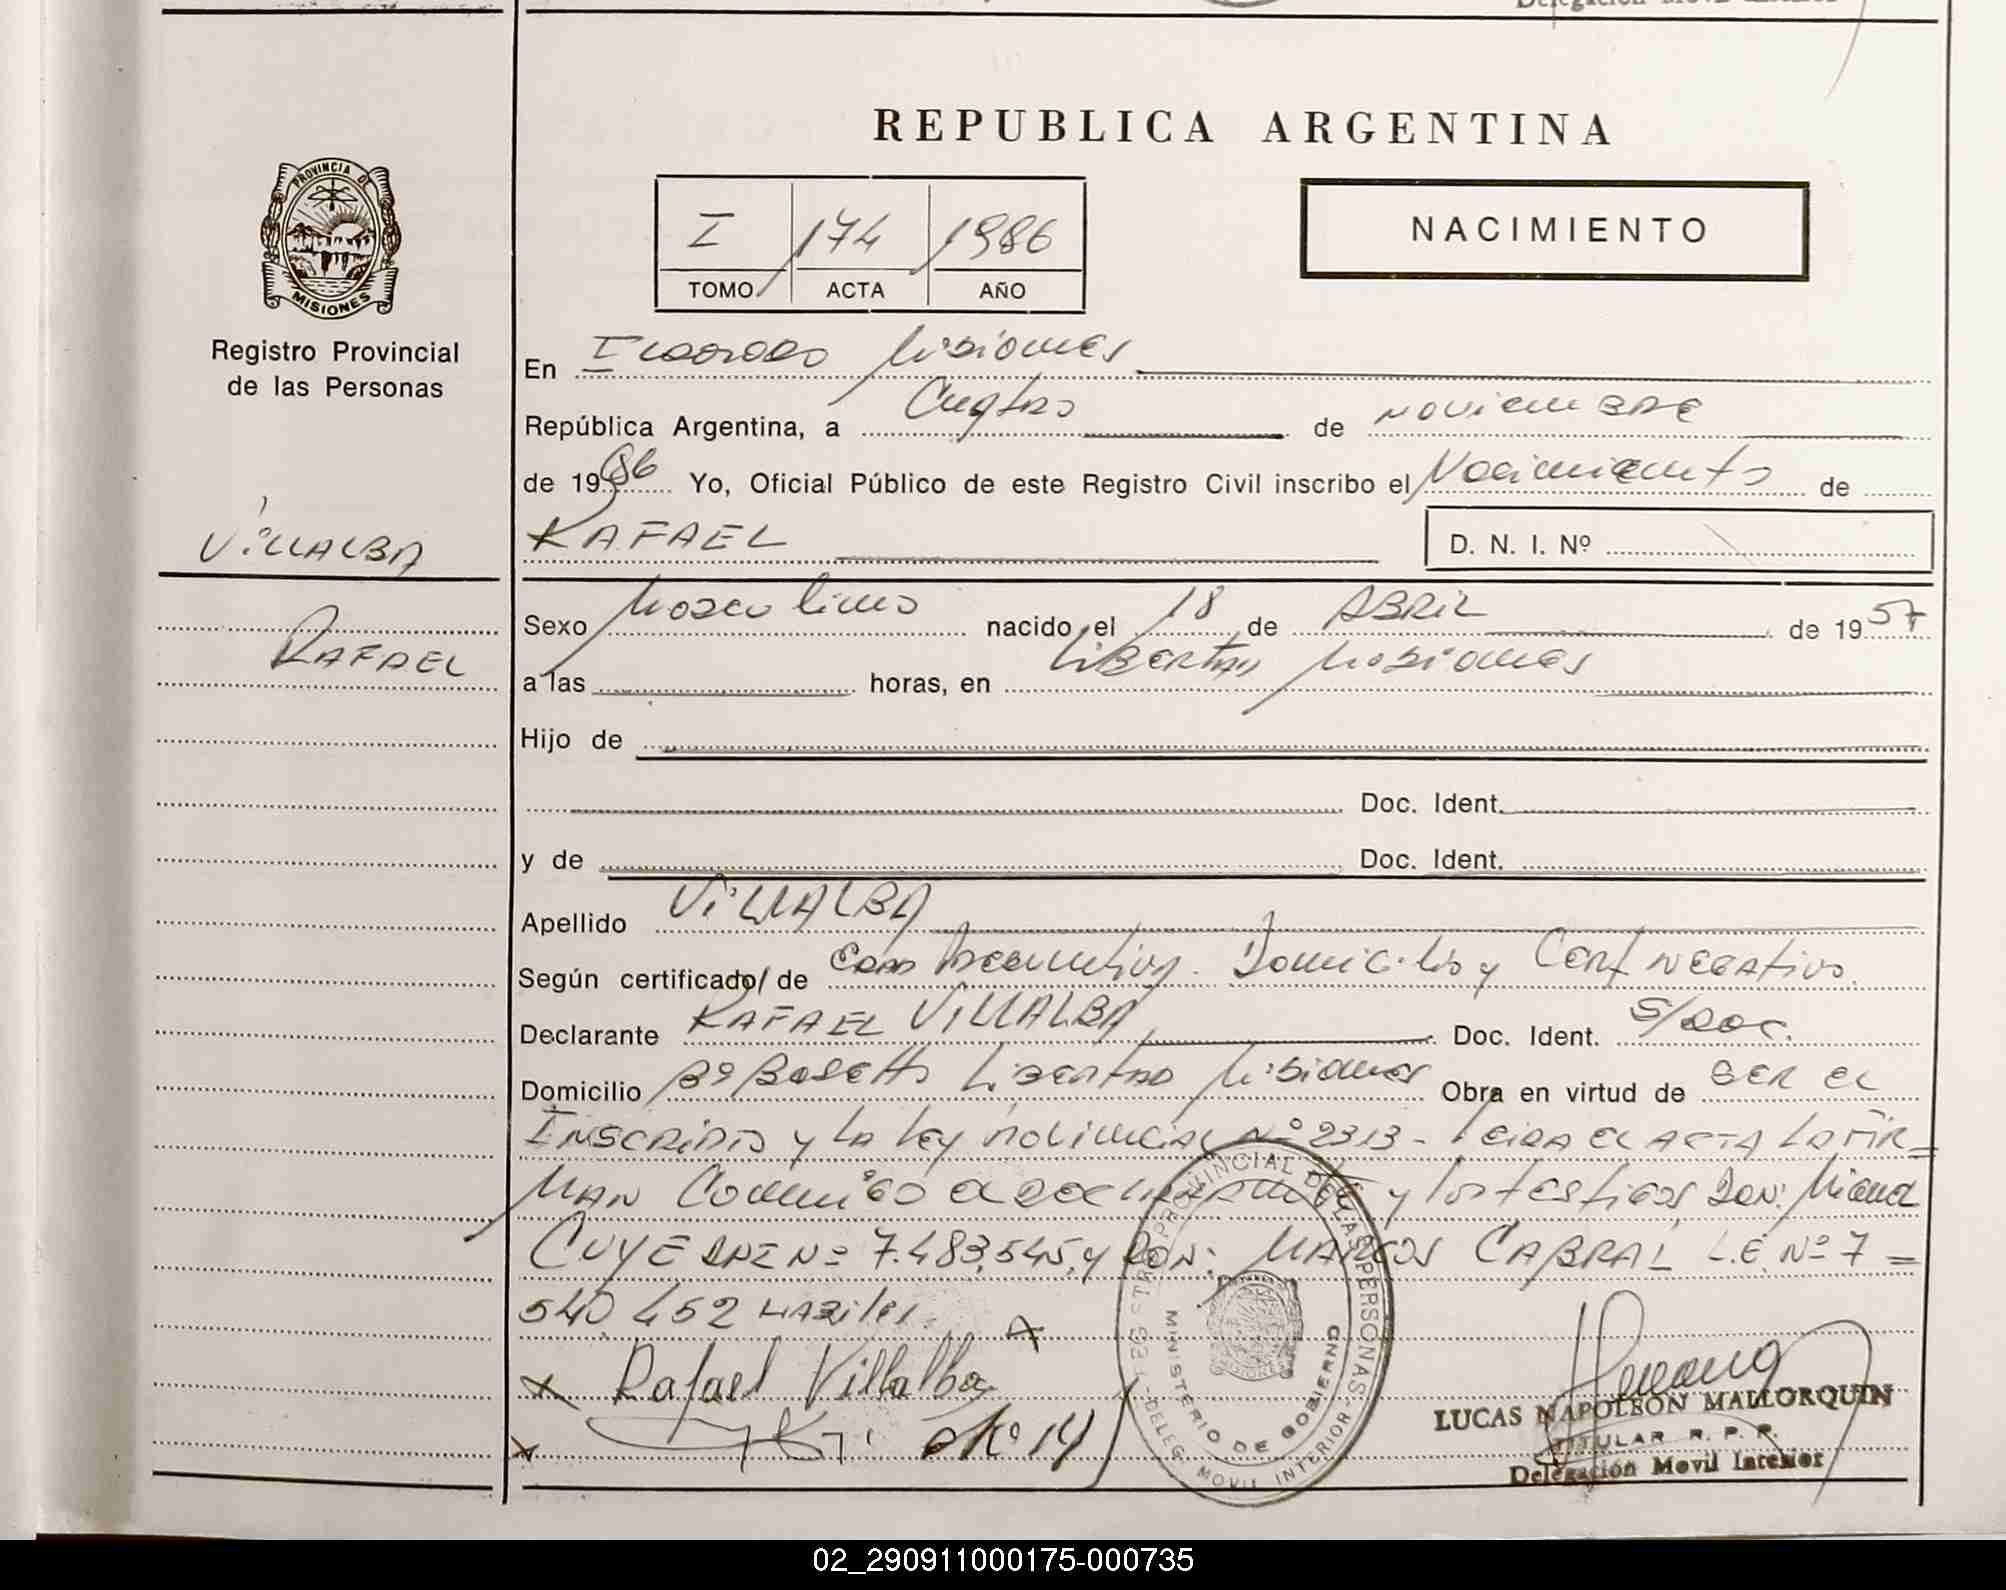 REPUBLICA ARGENTINA
PROVINCIA DE
MISIONES
Registro Provincial
de las Personas
I 174 1986
TOMO ACTA AÑO
NACIMIENTO
En Eldorado Misiones
República Argentina, a Cuatro de noviembre
de 1986 Yo, Oficial Público de este Registro Civil inscribo el Nacimiento de
VILLALBA
RAFAEL D. N. I. Nº
RAFAEL
Sexo Masculino nacido el 18 de ABRIL de 1957
a las horas, en Libertad Misiones
Hijo de
Doc. Ident.
y de Doc. Ident.
Apellido VILLALBA
Según certificado/de Domicilio y Cert negativo.
Declarante RAFAEL VILLALBA Doc. Ident. S/Doc.
Domicilio Bº Libertad Misiones Obra en virtud de SER EL
INSCRIPTO y LA Ley Nº 2313 - Leida EL ACTA LA FIR=
MAN Conmigo el y los testigos Don: Miguel
CUYE DNI Nº 7.483.545, y DON: MARCOS CABRAL L.E. Nº 7=
540.452 HABILES.
Rafael Villalba
Nº 14
REGISTRO PROVINCIAL DE LAS PERSONAS
MINISTERIO DE GOBIERNO
DELEG. MOVIL INTERIOR
LUCAS NAPOLEON MALLORQUIN
TITULAR R. P. P.
Delegación Movil Interior
02_290911000175-000735